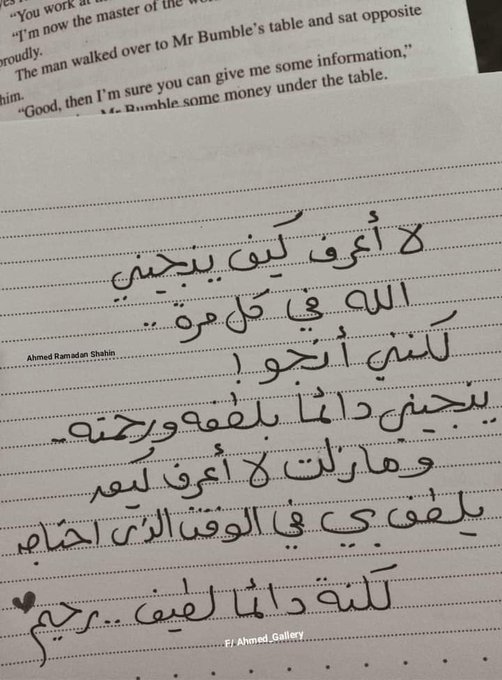 “You work at
“I’m now the master of the
proudly.
The man walked over to Mr Bumble’s table and sat opposite
him.
“Good, then I’m sure you can give me some information,”
Mr Bumble some money under the table.
لا أعرف كيف ينجيني
الله في كل مرة ..
لكنني أنجو !
Ahmed Ramadan Shahin
ينجيني دائما بلطفه ورحمته ..
ومازلت لا أعرف كيف
يلطف بي في الوقت الذي احتاجه
لكنة دائما لطيف .. رحيم
F/ Ahmed_Gallery